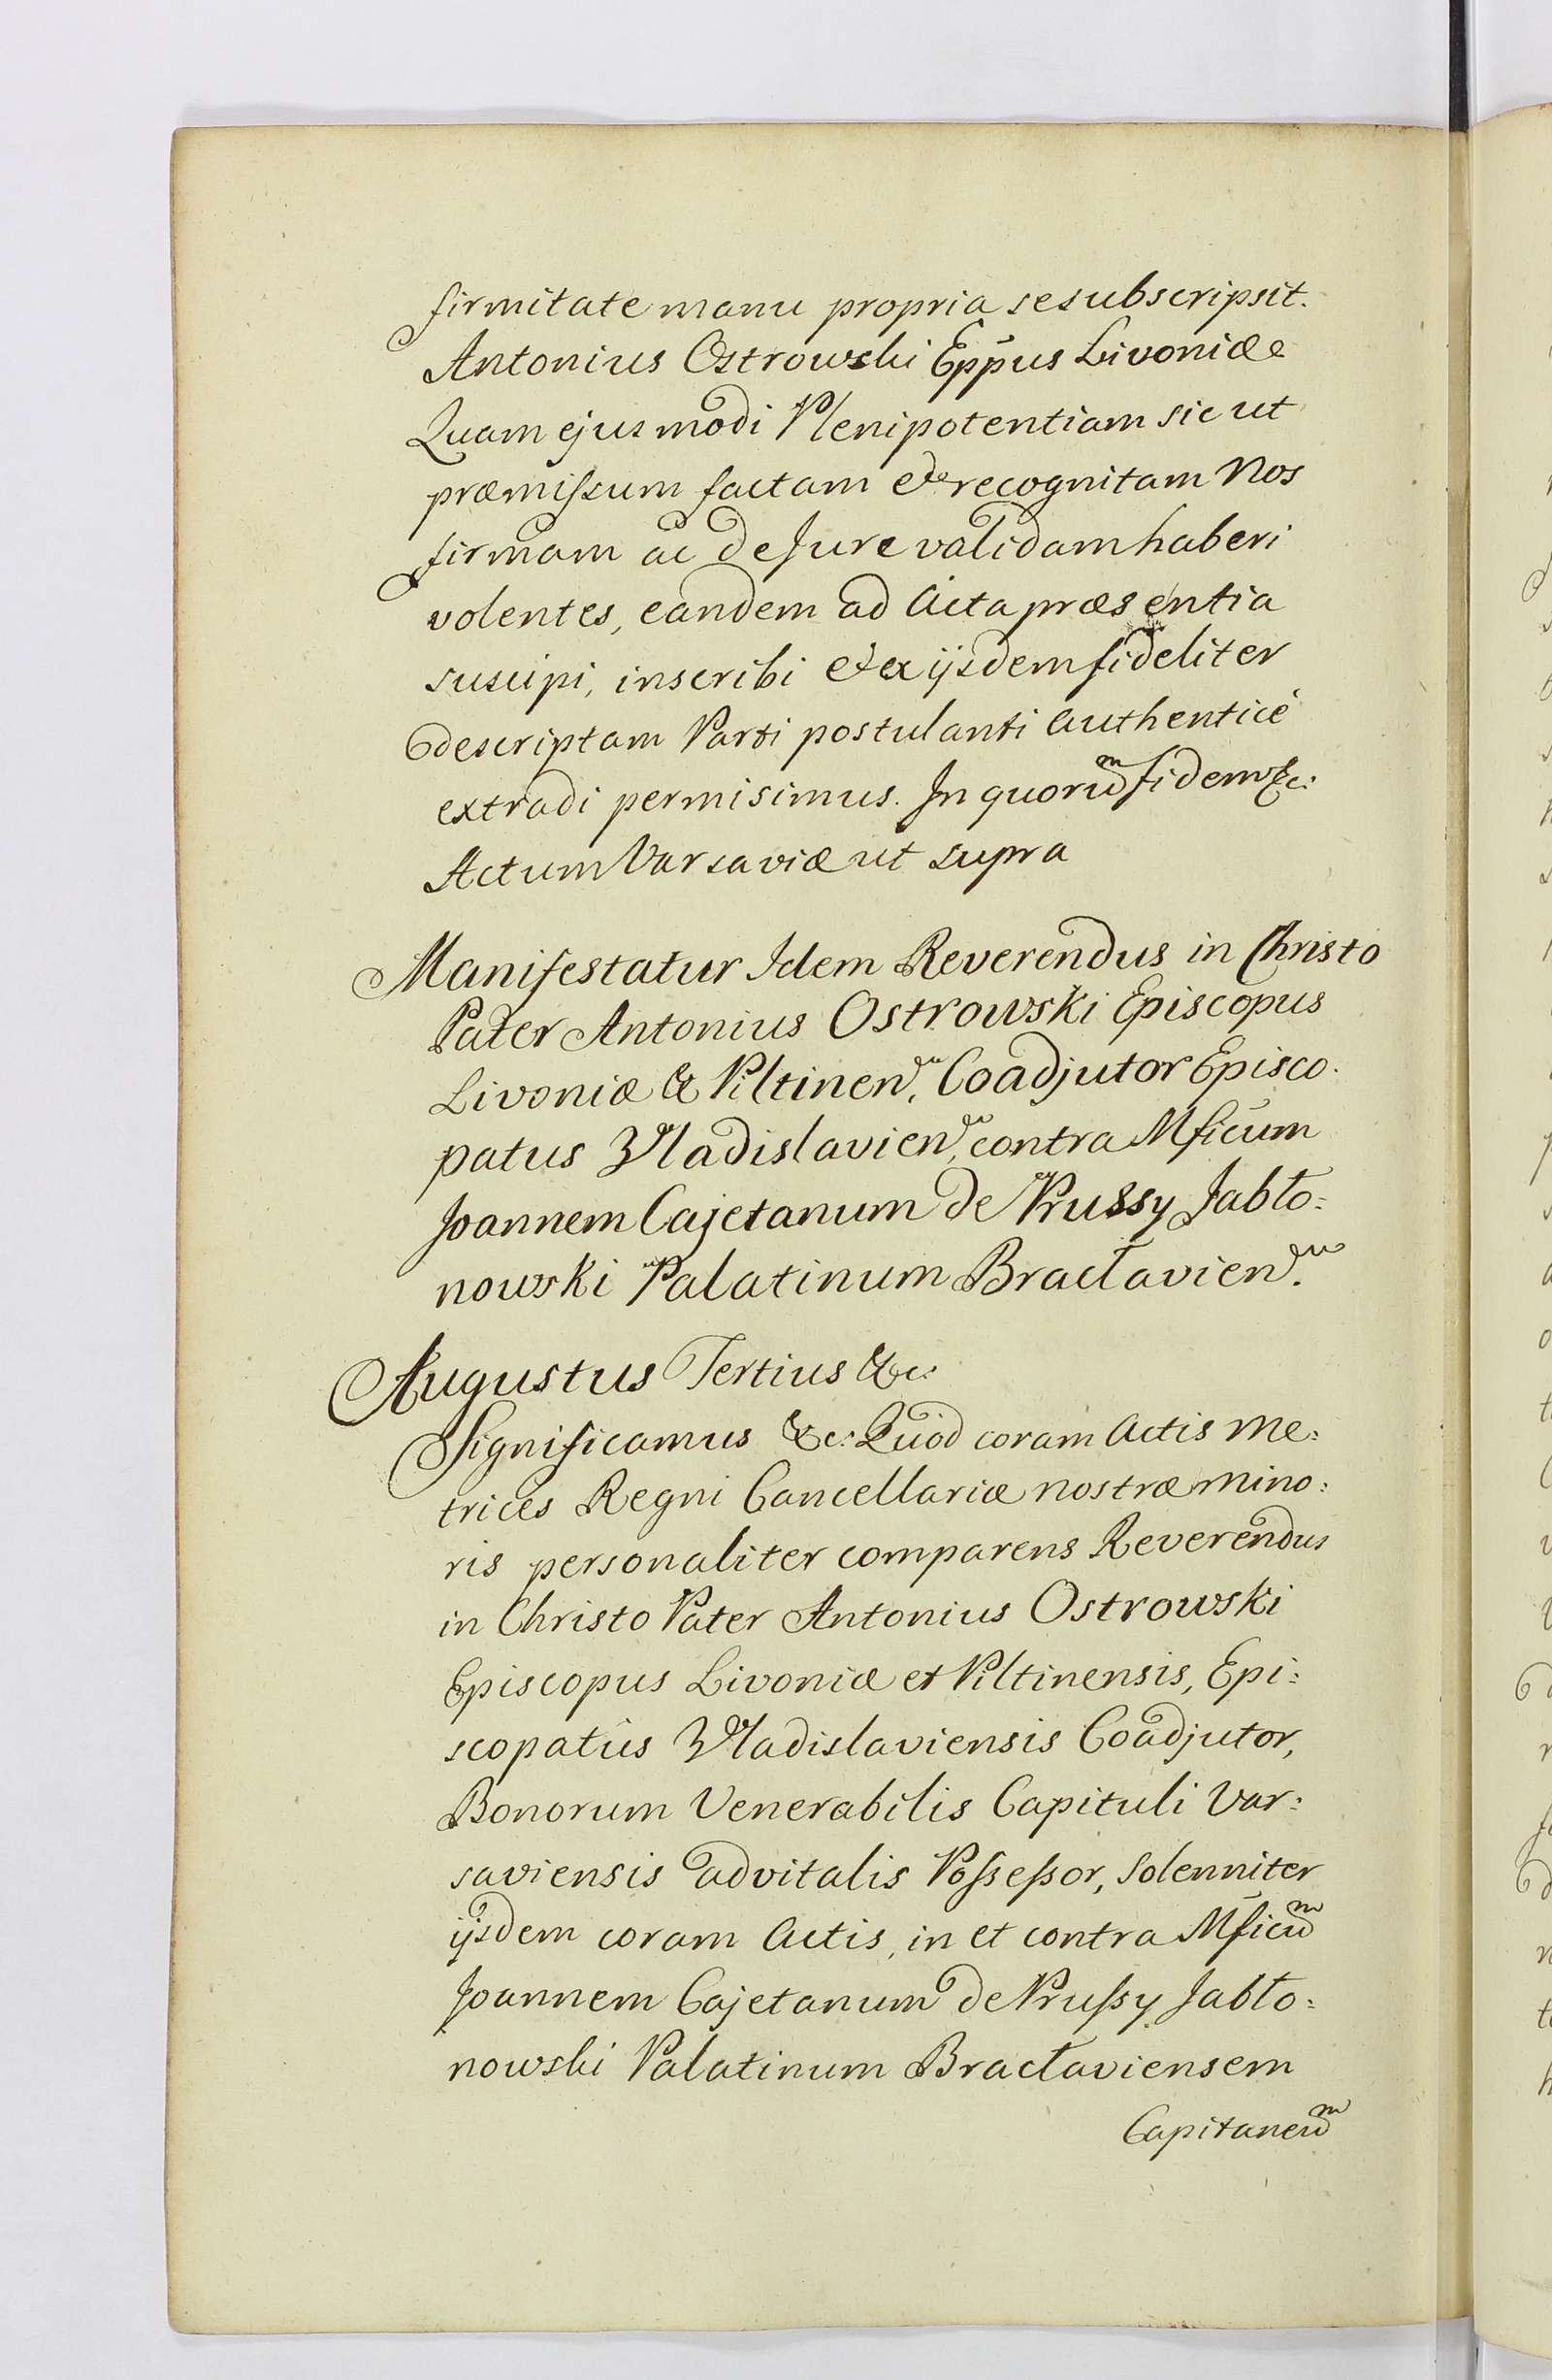 firmitate manu propria se subscripsit.
Antonius Ostrowski Eppus Livoniæ
Quam ejusmodi Plenipotentiam sic ut
præmissum factam et recognitam Nos
firmam ac de Jure validam haberi
volentes, eandem ad Acta præsentia
suscipi, inscribi et ex ijsdem fideliter
descriptam Parti postulanti authenticè
extradi permisimus. In quorum fidem &c:
Actum Varsaviæ ut supra
Manifestatur Idem Reverendus in Christo
Pater Antonius Ostrowski Episcopus
Livoniæ & Piltinen. Coadjutor Episco-
patus Vladislavien, contra Mficum
Joannem Cajetanum de Prussy Jabło=
nowski Palatinum Bracłavien.
Augustus Tertius &c:
Significamus &c: Quòd coram Actis Me=
trices Regni Cancellariæ nostræ mino=
ris personaliter comparens Reverendus
in Christo Pater Antonius Ostrowski
Episcopus Livoniæ et Piltinensis, Epi=
scopatûs Vladislaviensis Coadjutor,
Bonorum Venerabilis Capituli Var=
saviensis advitalis Possessor, solenniter
ijsdem coram Actis, in et contra Mficum
Joannem Cajetanum de Prussy Jabło=
nowski Palatinum Bracłaviensem
Capitaneum